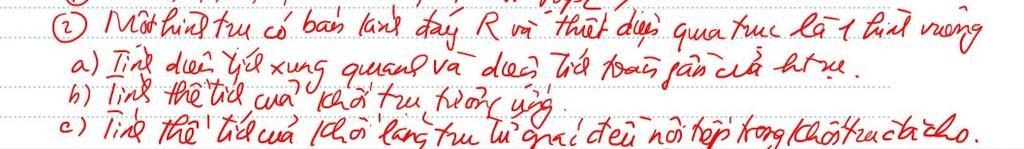 ② Một hình trụ có bán kính đáy R và thiết diện qua trục là 1 hình vuông
a) Tính diện tích xung quanh và diện tích toàn phần của htrụ.
b) Tính thể tích của khối trụ tương ứng.
c) Tính thể tích của khối lăng trụ tứ giác đều nội tiếp trong khối trụ đã cho.